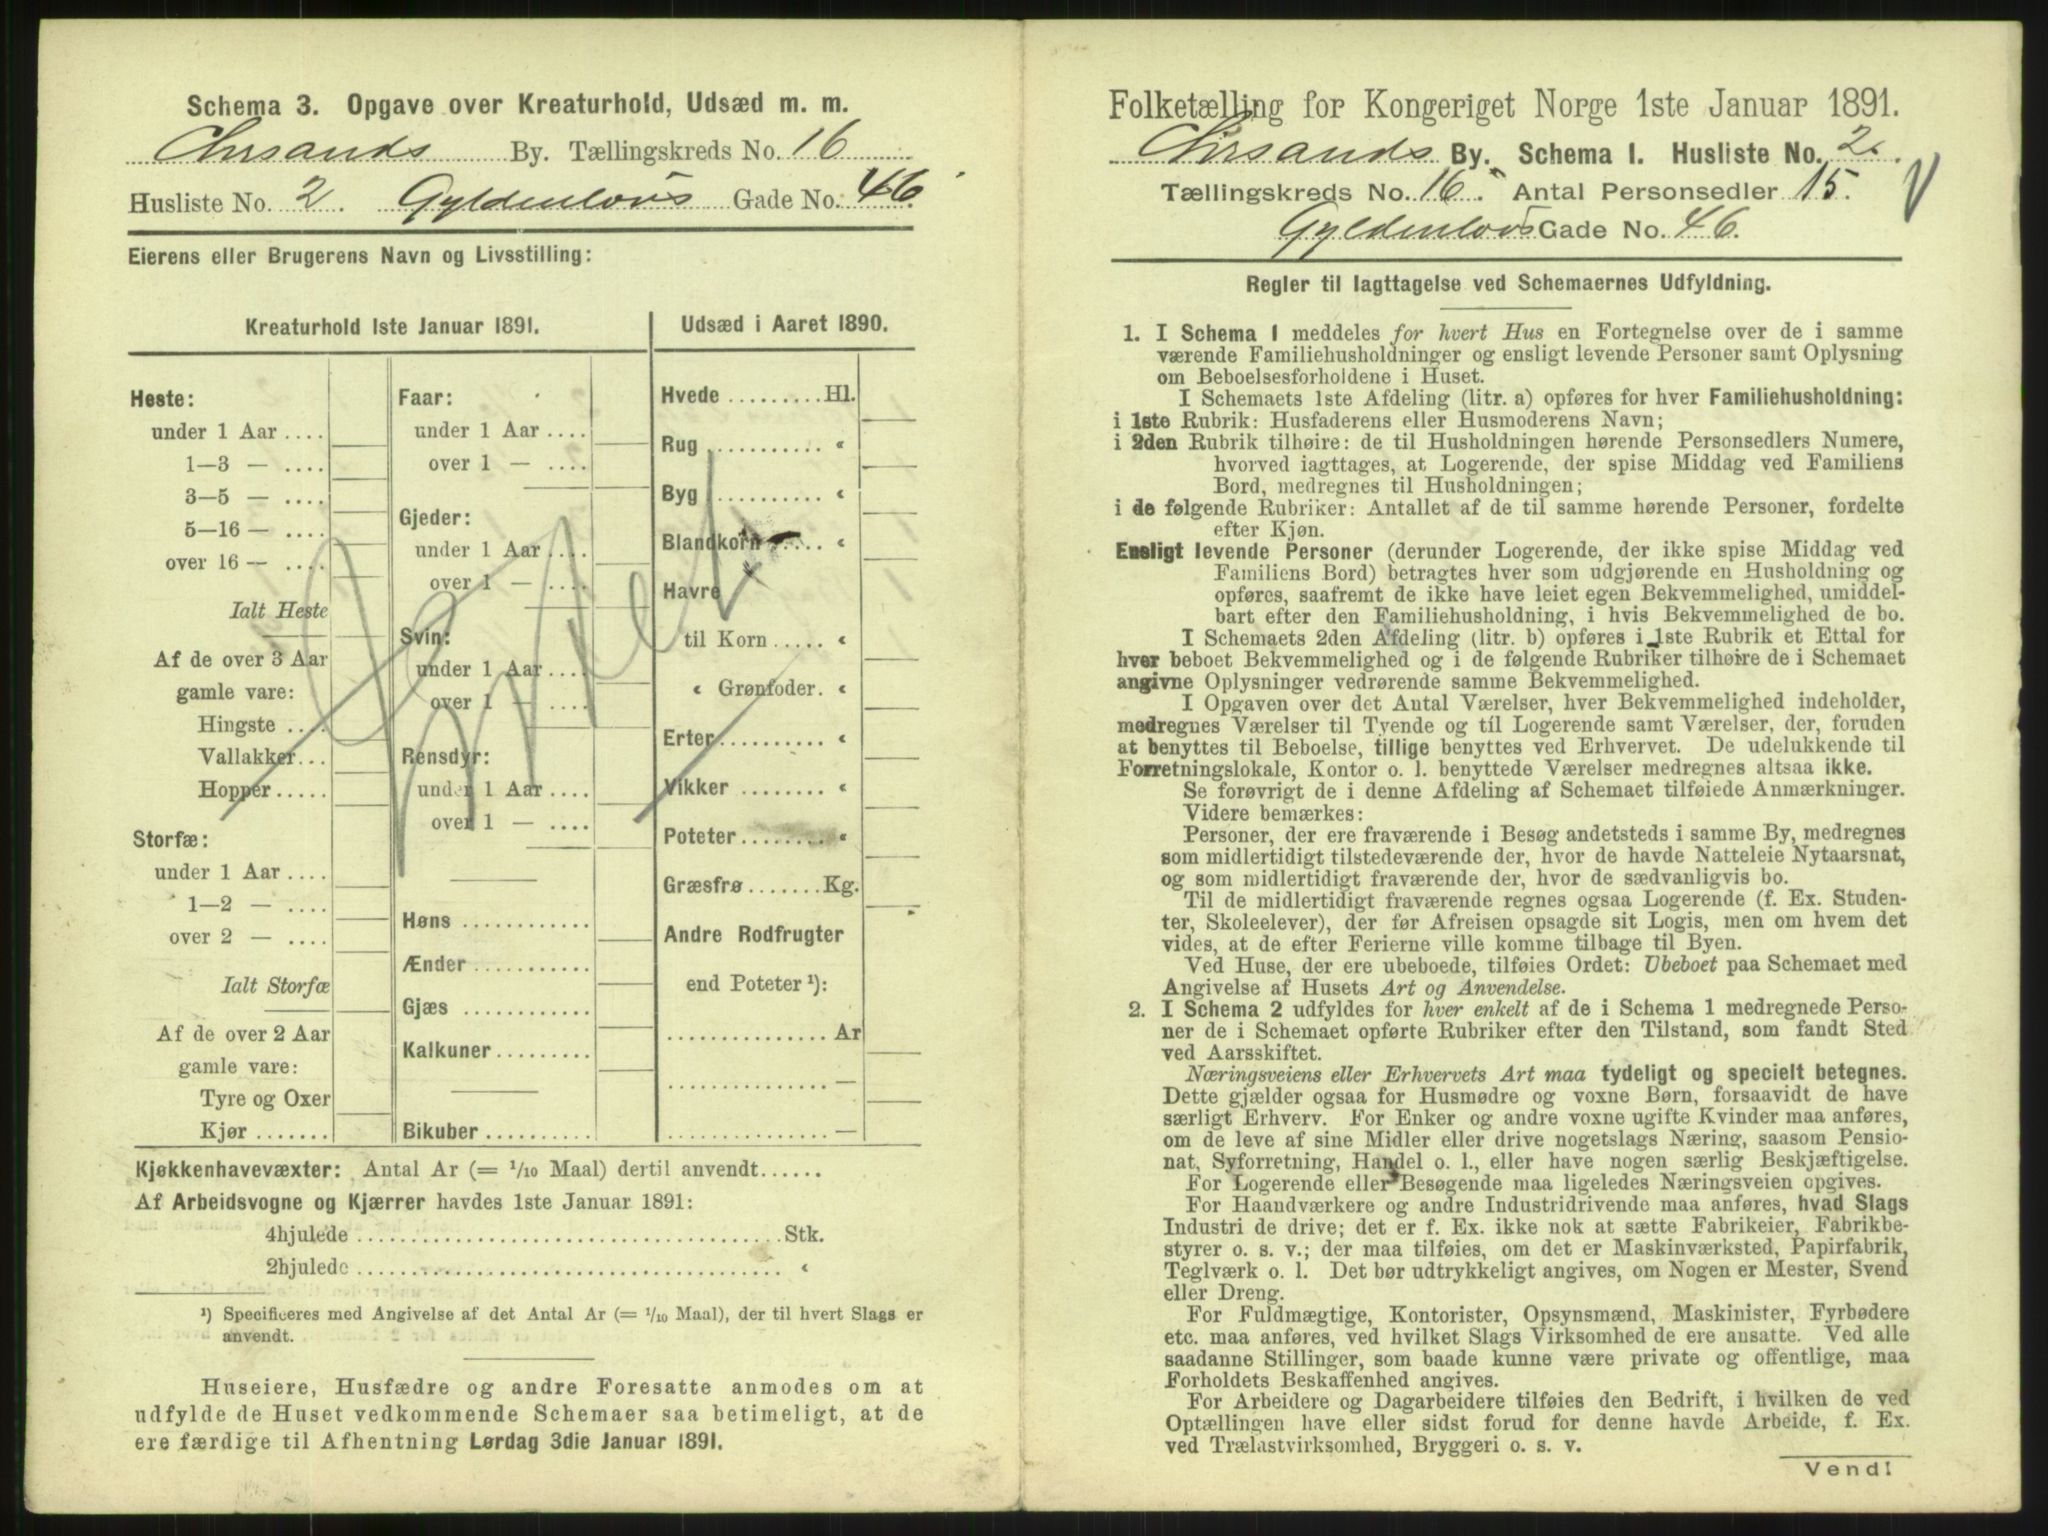 Schema 3. Opgave over Kreaturhold, Udsæd m. m.
Chrsands By. Tællingskreds No. 16
Husliste No. 2. Gyldenløvs Gade No. 46.
Eierens eller Brugerens Navn og Livsstilling:
Kreaturhold 1ste Januar 1891.
Heste:
under 1 Aar ....
1—3 — ....
3—5 — ....
5—16 — ....
over 16 — ....
Ialt Heste
Af de over 3 Aar
gamle vare:
Hingste ....
Vallakker...
Hopper.....
Storfæ:
under 1 Aar ....
1—2 — ....
over 2 — ....
Ialt Storfæ
Af de over 2 Aar
gamle vare:
Tyre og Oxer
Kjør .......
Faar:
under 1 Aar ....
over 1 — ....
Gjeder:
under 1 Aar ....
over 1 — ....
Svin:
under 1 Aar ....
over 1 — ....
Rensdyr:
under 1 Aar ....
over 1 — ....
Høns ............
Ænder ...........
Gjæs ............
Kalkuner.........
Bikuber..........
Udsæd i Aaret 1890.
Hvede .........Hl.
Rug .......... «
Byg .......... «
Blandkorn ..... «
Havre
til Korn ..... «
« Grønfoder. «
Erter.......... «
Vikker ........ «
Poteter ........ «
Græsfrø .......Kg.
Andre Rodfrugter
end Poteter ¹):
............... Ar
............... —
............... —
Kjøkkenhavevæxter: Antal Ar (= 1/10 Maal) dertil anvendt......
Af Arbeidsvogne og Kjærrer havdes 1ste Januar 1891:
4hjulede ........................................Stk.
2hjulede ........................................ «
¹) Specificeres med Angivelse af det Antal Ar (= 1/10 Maal), der til hvert Slags er
anvendt.
Huseiere, Husfædre og andre Foresatte anmodes om at
udfylde de Huset vedkommende Schemaer saa betimeligt, at de
ere færdige til Afhentning Lørdag 3die Januar 1891.
Folketælling for Kongeriget Norge 1ste Januar 1891.
Chrsands By. Schema I. Husliste No. 2.
Tællingskreds No. 16. Antal Personsedler 15.
Gyldenløvs Gade No. 46.
Regler til Iagttagelse ved Schemaernes Udfyldning.
1. I Schema 1 meddeles for hvert Hus en Fortegnelse over de i samme
værende Familiehusholdninger og ensligt levende Personer samt Oplysning
om Beboelsesforholdene i Huset.
I Schemaets 1ste Afdeling (litr. a) opføres for hver Familiehusholdning:
i 1ste Rubrik: Husfaderens eller Husmoderens Navn;
i 2den Rubrik tilhøire: de til Husholdningen hørende Personsedlers Numere,
hvorved iagttages, at Logerende, der spise Middag ved Familiens
Bord, medregnes til Husholdningen;
i de følgende Rubriker: Antallet af de til samme hørende Personer, fordelte
efter Kjøn.
Ensligt levende Personer (derunder Logerende, der ikke spise Middag ved
Familiens Bord) betragtes hver som udgjørende en Husholdning og
opføres, saafremt de ikke have leiet egen Bekvemmelighed, umiddel-
bart efter den Familiehusholdning, i hvis Bekvemmelighed de bo.
I Schemaets 2den Afdeling (litr. b) opføres i 1ste Rubrik et Ettal for
hver beboet Bekvemmelighed og i de følgende Rubriker tilhøire de i Schemaet
angivne Oplysninger vedrørende samme Bekvemmelighed.
I Opgaven over det Antal Værelser, hver Bekvemmelighed indeholder,
medregnes Værelser til Tyende og til Logerende samt Værelser, der, foruden
at benyttes til Beboelse, tillige benyttes ved Erhvervet. De udelukkende til
Forretningslokale, Kontor o. l. benyttede Værelser medregnes altsaa ikke.
Se forøvrigt de i denne Afdeling af Schemaet tilføiede Anmærkninger.
Videre bemærkes:
Personer, der ere fraværende i Besøg andetsteds i samme By, medregnes
som midlertidigt tilstedeværende der, hvor de havde Natteleie Nytaarsnat,
og som midlertidigt fraværende der, hvor de sædvanligvis bo.
Til de midlertidigt fraværende regnes ogsaa Logerende (f. Ex. Studen-
ter, Skoleelever), der før Afreisen opsagde sit Logis, men om hvem det
vides, at de efter Ferierne ville komme tilbage til Byen.
Ved Huse, der ere ubeboede, tilføies Ordet: Ubeboet paa Schemaet med
Angivelse af Husets Art og Anvendelse.
2. I Schema 2 udfyldes for hver enkelt af de i Schema 1 medregnede Perso-
ner de i Schemaet opførte Rubriker efter den Tilstand, som fandt Sted
ved Aarsskiftet.
Næringsveiens eller Erhvervets Art maa tydeligt og specielt betegnes.
Dette gjælder ogsaa for Husmødre og voxne Børn, forsaavidt de have
særligt Erhverv. For Enker og andre voxne ugifte Kvinder maa anføres,
om de leve af sine Midler eller drive nogetslags Næring, saasom Pensio-
nat, Syforretning, Handel o. l., eller have nogen særlig Beskjæftigelse.
For Logerende eller Besøgende maa ligeledes Næringsveien opgives.
For Haandværkere og andre Industridrivende maa anføres, hvad Slags
Industri de drive; det er f. Ex. ikke nok at sætte Fabrikeier, Fabrikbe-
styrer o. s. v.; der maa tilføies, om det er Maskinværksted, Papirfabrik,
Teglværk o. l. Det bør udtrykkeligt angives, om Nogen er Mester, Svend
eller Dreng.
For Fuldmægtige, Kontorister, Opsynsmænd, Maskinister, Fyrbødere
etc. maa anføres, ved hvilket Slags Virksomhed de ere ansatte. Ved alle
saadanne Stillinger, som baade kunne være private og offentlige, maa
Forholdets Beskaffenhed angives.
For Arbeidere og Dagarbeidere tilføies den Bedrift, i hvilken de ved
Optællingen have eller sidst forud for denne havde Arbeide, f. Ex.
ved Trælastvirksomhed, Bryggeri o. s. v.
Vend!